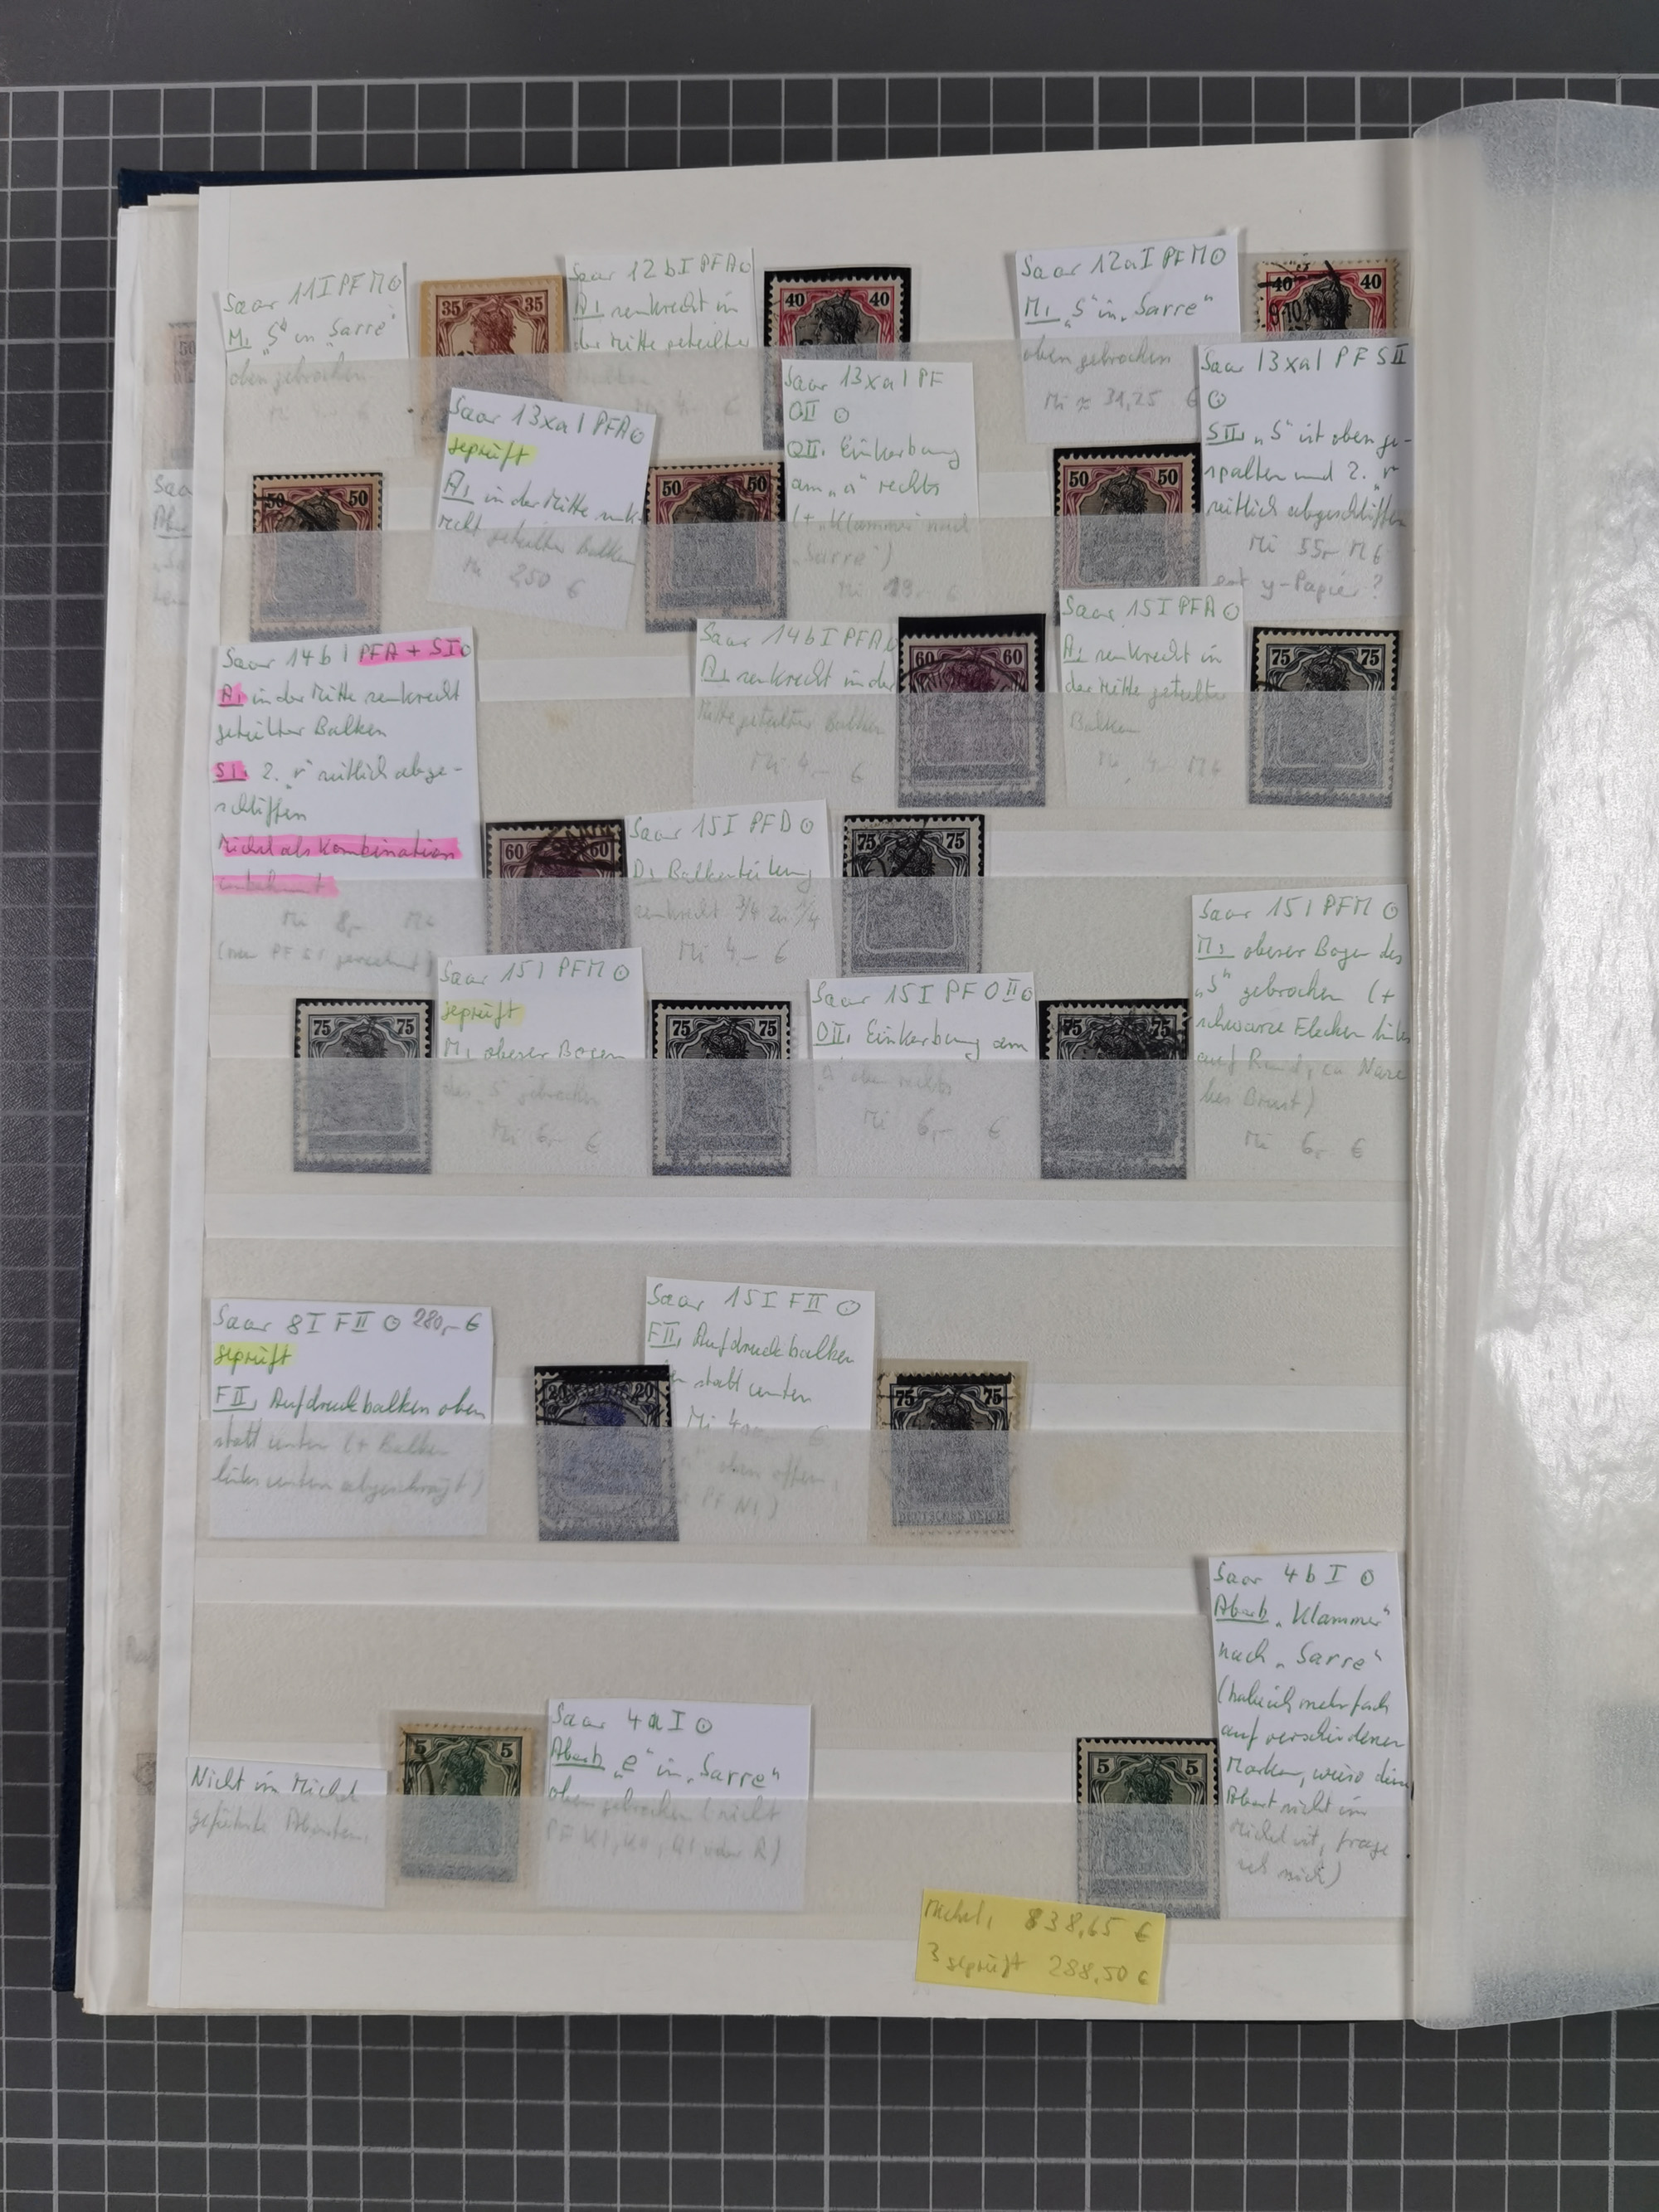 Saar 11 I PF M ⊙
M: "S" in "Sarre"
oben gebrochen
35 35
Saar 12 b I PF A ⊙
A: senkrecht in
der Mitte geteilter
Balken
40 40
Saar 12 a I PF M ⊙
M: "S" in "Sarre"
oben gebrochen
Mi ≈ 31,25 €
40 40
50 50
Saar 13 x a I PF A ⊙
geprüft
A: in der Mitte senk-
recht geteilter Balken
Mi 250 €
50 50
Saar 13 x a I PF
OII ⊙
OII: Einkerbung
am "a" rechts
(+ "Klammer" nach
"Sarre")
50 50
Saar 13 x a I PF S II
⊙
S II: "S" ist oben ge-
spalten und 2. "r"
seitlich abgeschliffen
Mi 55,-
y-Papier?
Saar 14 b I PF A + S I ⊙
A: in der Mitte senkrecht
geteilter Balken
S I: 2. "r" seitlich abge-
schliffen
Michel als Kombination
unbekannt
Mi 8,-
Saar 14 b I PF A ⊙
A: senkrecht in der
Mitte geteilter Balken
Mi 4,- €
60 60
Saar 15 I PF A ⊙
A: senkrecht in
der Mitte geteilter
Balken
75 75
60 60
Saar 15 I PF D ⊙
D: Balkenteilung
senkrecht 3/4 zu 1/4
Mi 4,- €
75 75
75 75
Saar 15 I PF M ⊙
geprüft
M: oberer Bogen
des "S" gebrochen
Mi 6,- €
75 75
Saar 15 I PF O II ⊙
OII: Einkerbung am
"a" oben rechts
Mi 6,- €
75 75
Saar 15 I PF M ⊙
M: oberer Bogen des
"S" gebrochen (+
schwarze Flecken links
auf Rand,
Mi 6,- €
Saar 8 I F II ⊙ 280,- €
geprüft
F II: Aufdruckbalken oben
statt unten (+ Balken
links unten abgeschrägt)
20 20
Saar 15 I F II ⊙
F II: Aufdruckbalken
statt unten
oben offen,
PF N I)
75 75
DEUTSCHES REICH
Nicht im Michel
geführte Abarten:
5 5
Saar 4 a I ⊙
Abart "e" in "Sarre"
oben gebrochen (nicht
PF K I, K II, Q I oder R)
5 5
Saar 4 b I ⊙
Abart "Klammer"
nach "Sarre"
(habe ich mehrfach
auf verschiedenen
Marken, wieso diese
Abart nicht im
Michel ist, frage
ich mich)
Michel: 838,65 €
3 geprüft 288,50 €